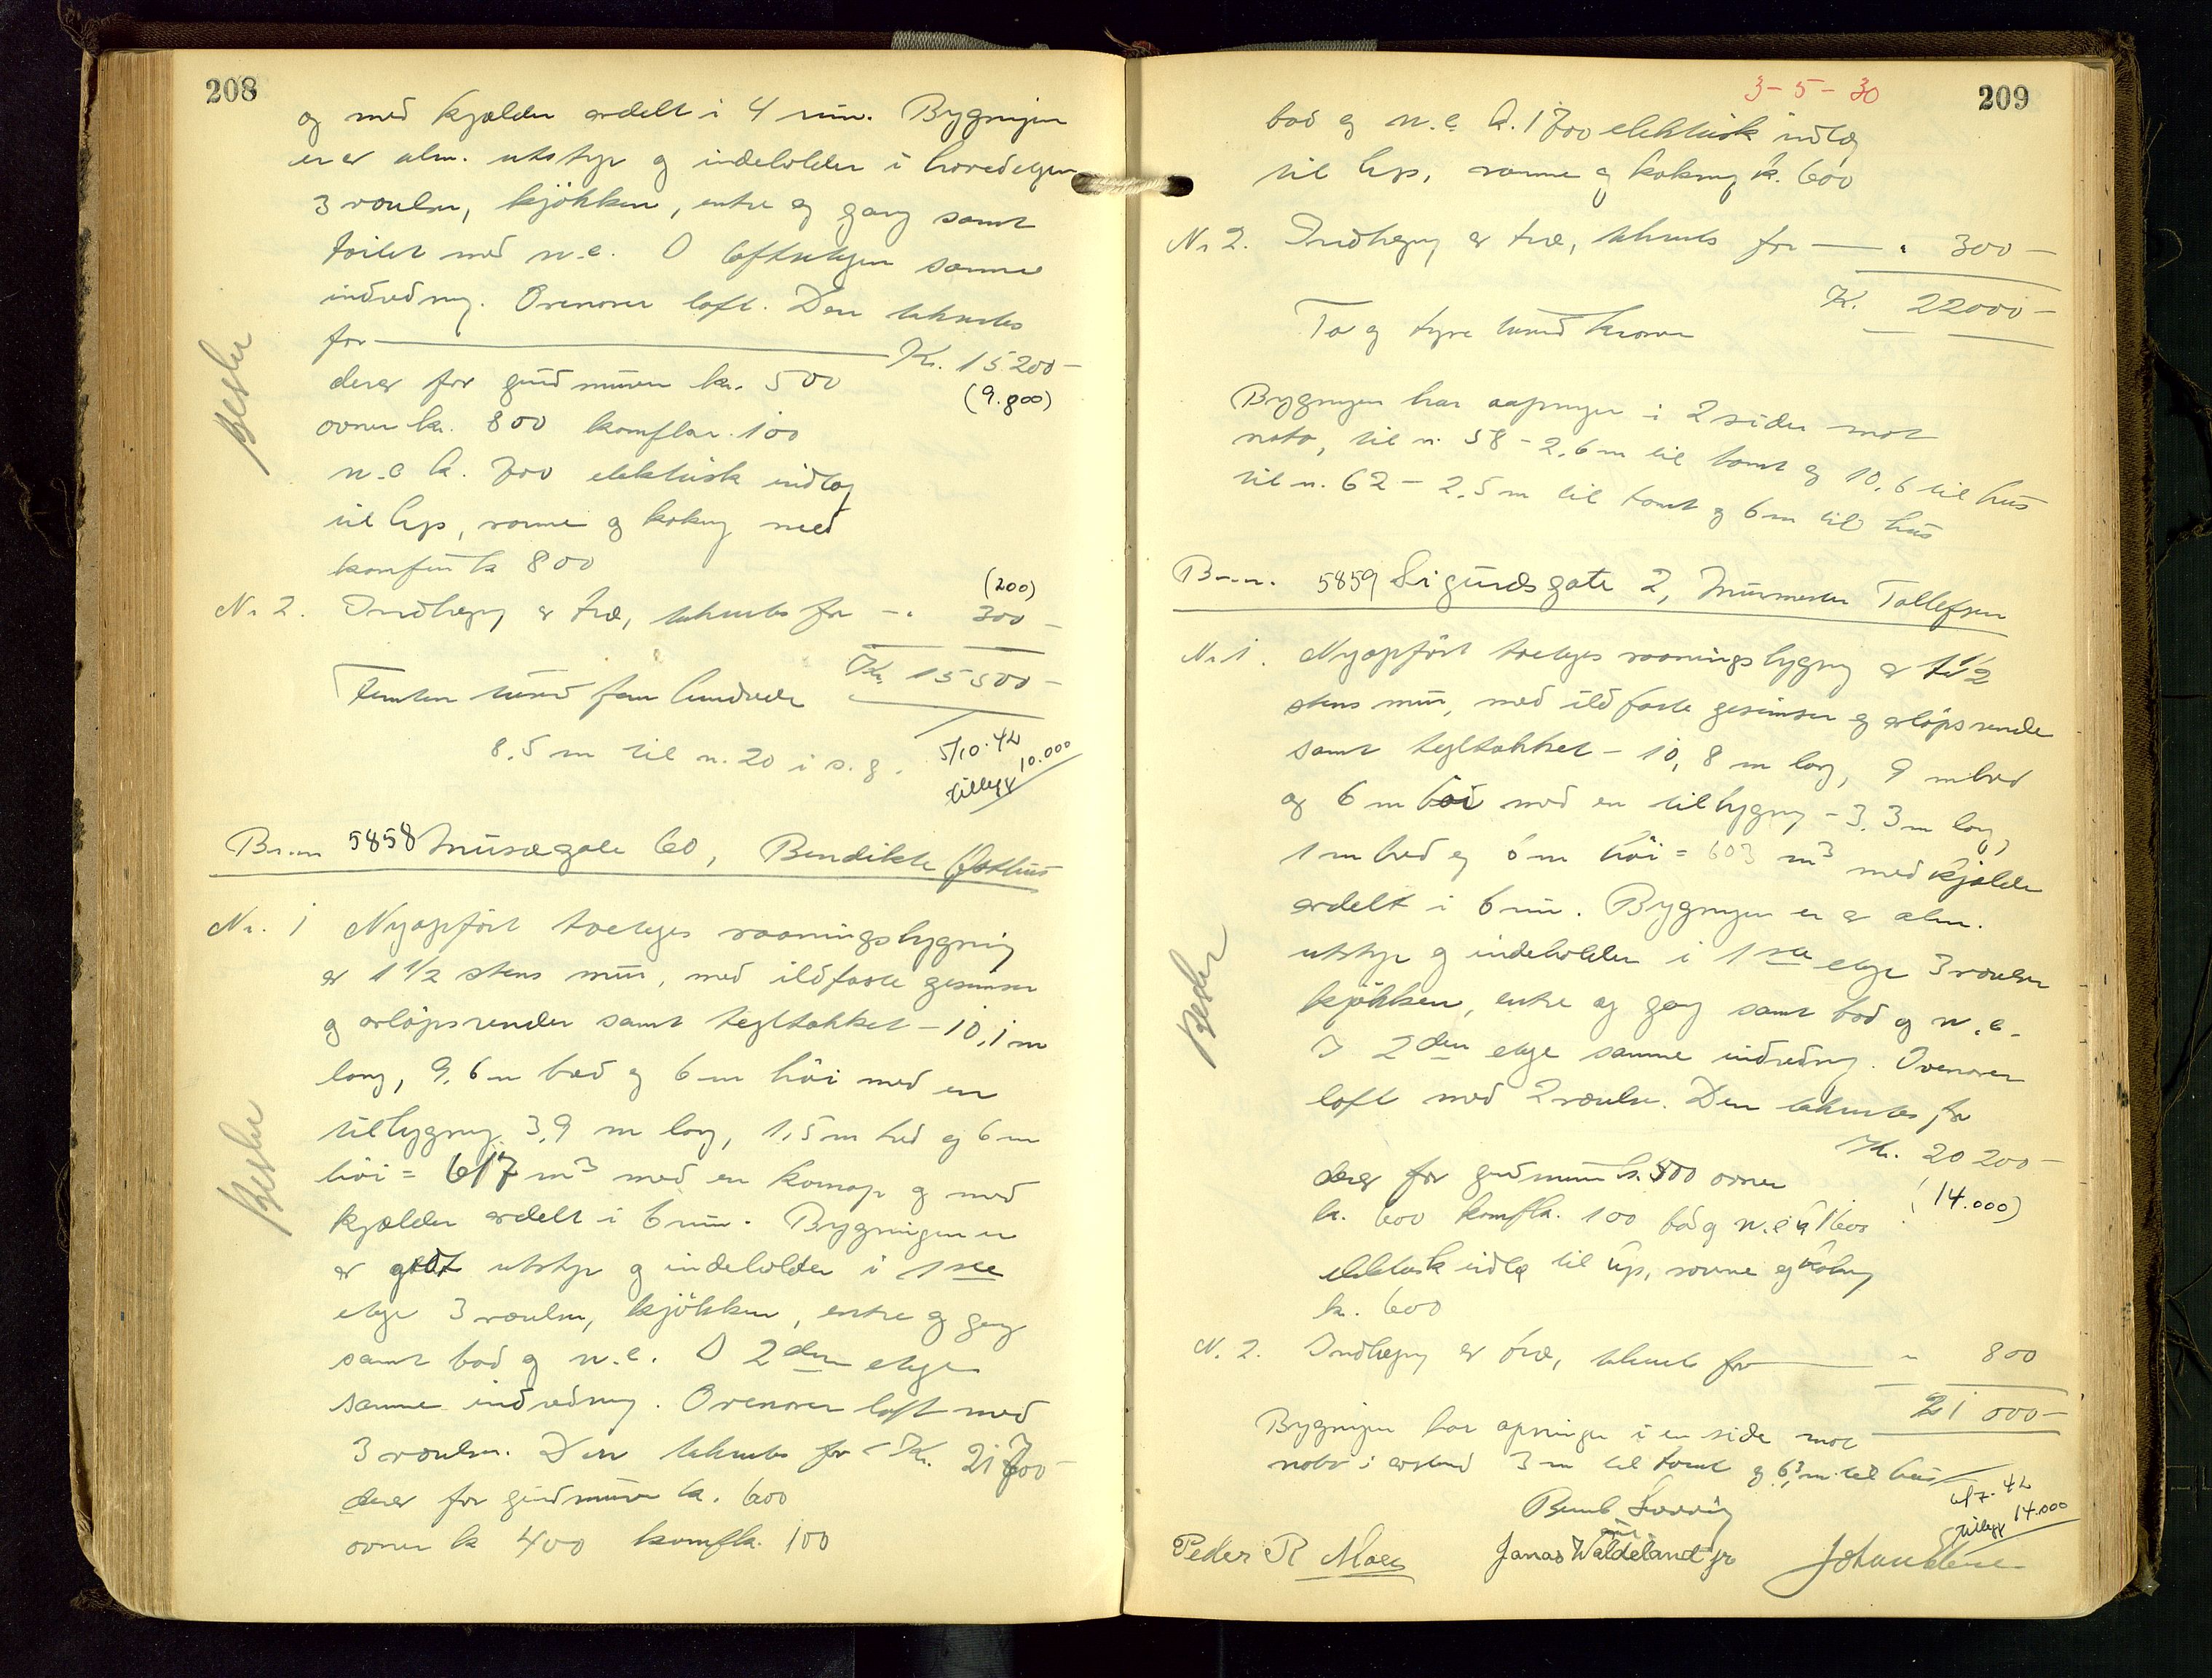 208
og med kjælder avdelt i 4 rum. Bygningen
er av alm. utstyr og indeholder i hovedetagen
3 værelser, kjøkken, entre og gang samt
toilet med w.c. I loftsetagen samme
indredning. Ovenover loft. Den takseres
for — Kr. 15200 –
derav for grundmuren kr. 500 (9.800)
ovner kr. 800 komfkr. 100
w.c kr. 700 elektrisk indlæg
til lys, varme og kokning med
komfur kr 800
(200)
Nr 2. Indhegning av træ, takseres for – " 300 –
Kr. 15500 –
Femten tusind fem hundrede
8,5 m til nr. 20 i s. g. 5/10.42
tillegg 10.000
Br.nr 5858 Musægate 60, Bendikte Østhus
Nr. 1 Nyopført toetages vaaningsbygning
av 1 1/2 stens mur, med ildfaste gesimser
og avløpsrender samt tegltakket – 10,1 m
lang, 9,6 m bred og 6 m høi med en
tilbygning 3,9 m lang, 1,5 m bred og 6 m
høi = 617 m3 med en kvmop og med
kjælder avdelt i 6 rum. Bygningen er
av godt utstyr og indeholder i 1ste
etage 3 værelser, kjøkken, entre og gang
samt bad og w.c. I 2den etage
samme indredning. Ovenover loft med
3 værelser. Den takseres for – Kr. 21700 –
derav for grundmuren kr. 600
ovner kr 400 komfkr. 100
Beske
Beske
3 – 5 – 30
209
bad og w.c. kr. 1700 elektrisk indlæg
til lys, varme og kokning kr. 600
Nr 2. Indhegning av træ, takseres for — " 300 –
Kr. 22000 –
To og tyve tusind kroner
Bygningen har aapninger i 2 sider mot
nabo, til nr. 58 – 2,6 m til tomt og 10,6 til hus
til nr. 62 – 2,5 m til tomt og 6 m til hus
Br.nr. 5859 Sigurdsgate 2, Murmester Tollefsen
Nr 1. Nyopført toetages vaaningsbygning av 1 1/2
stens mur, med ildfaste gesimser og avløpsrender
samt tegltakket – 10,8 m lang, 9 m bred
og 6 m høi med en tilbygning – 3,3 m lang,
1 m bred og 6 m høi = 603 m3 med kjælder
avdelt i 6 rum. Bygningen er av alm.
utstyr og indeholder i 1ste etage 3 værelser
kjøkken, entre og gang samt bad og w.c.
I 2den etage samme indredning. Ovenover
loft med 2 værelser. Den takseres for
Kr. 20200 –
derav for grundmuren kr. 500 ovner
(14.000)
kr. 600 komfkr. 100 bad og w.c kr 1600
elektrisk indlæg til lys, varme og kokning
kr. 600
Nr. 2. Indhegning av træ, takseres for — " 800
21000 –
Bygningen har apninger i en side mot
nabo i avstand 3 m til tomt og 6,3 m til hus
6/7.42
tillegg 14.000
Peder R Moen Jonas Waldeland jr Johan Eliesen
Beske